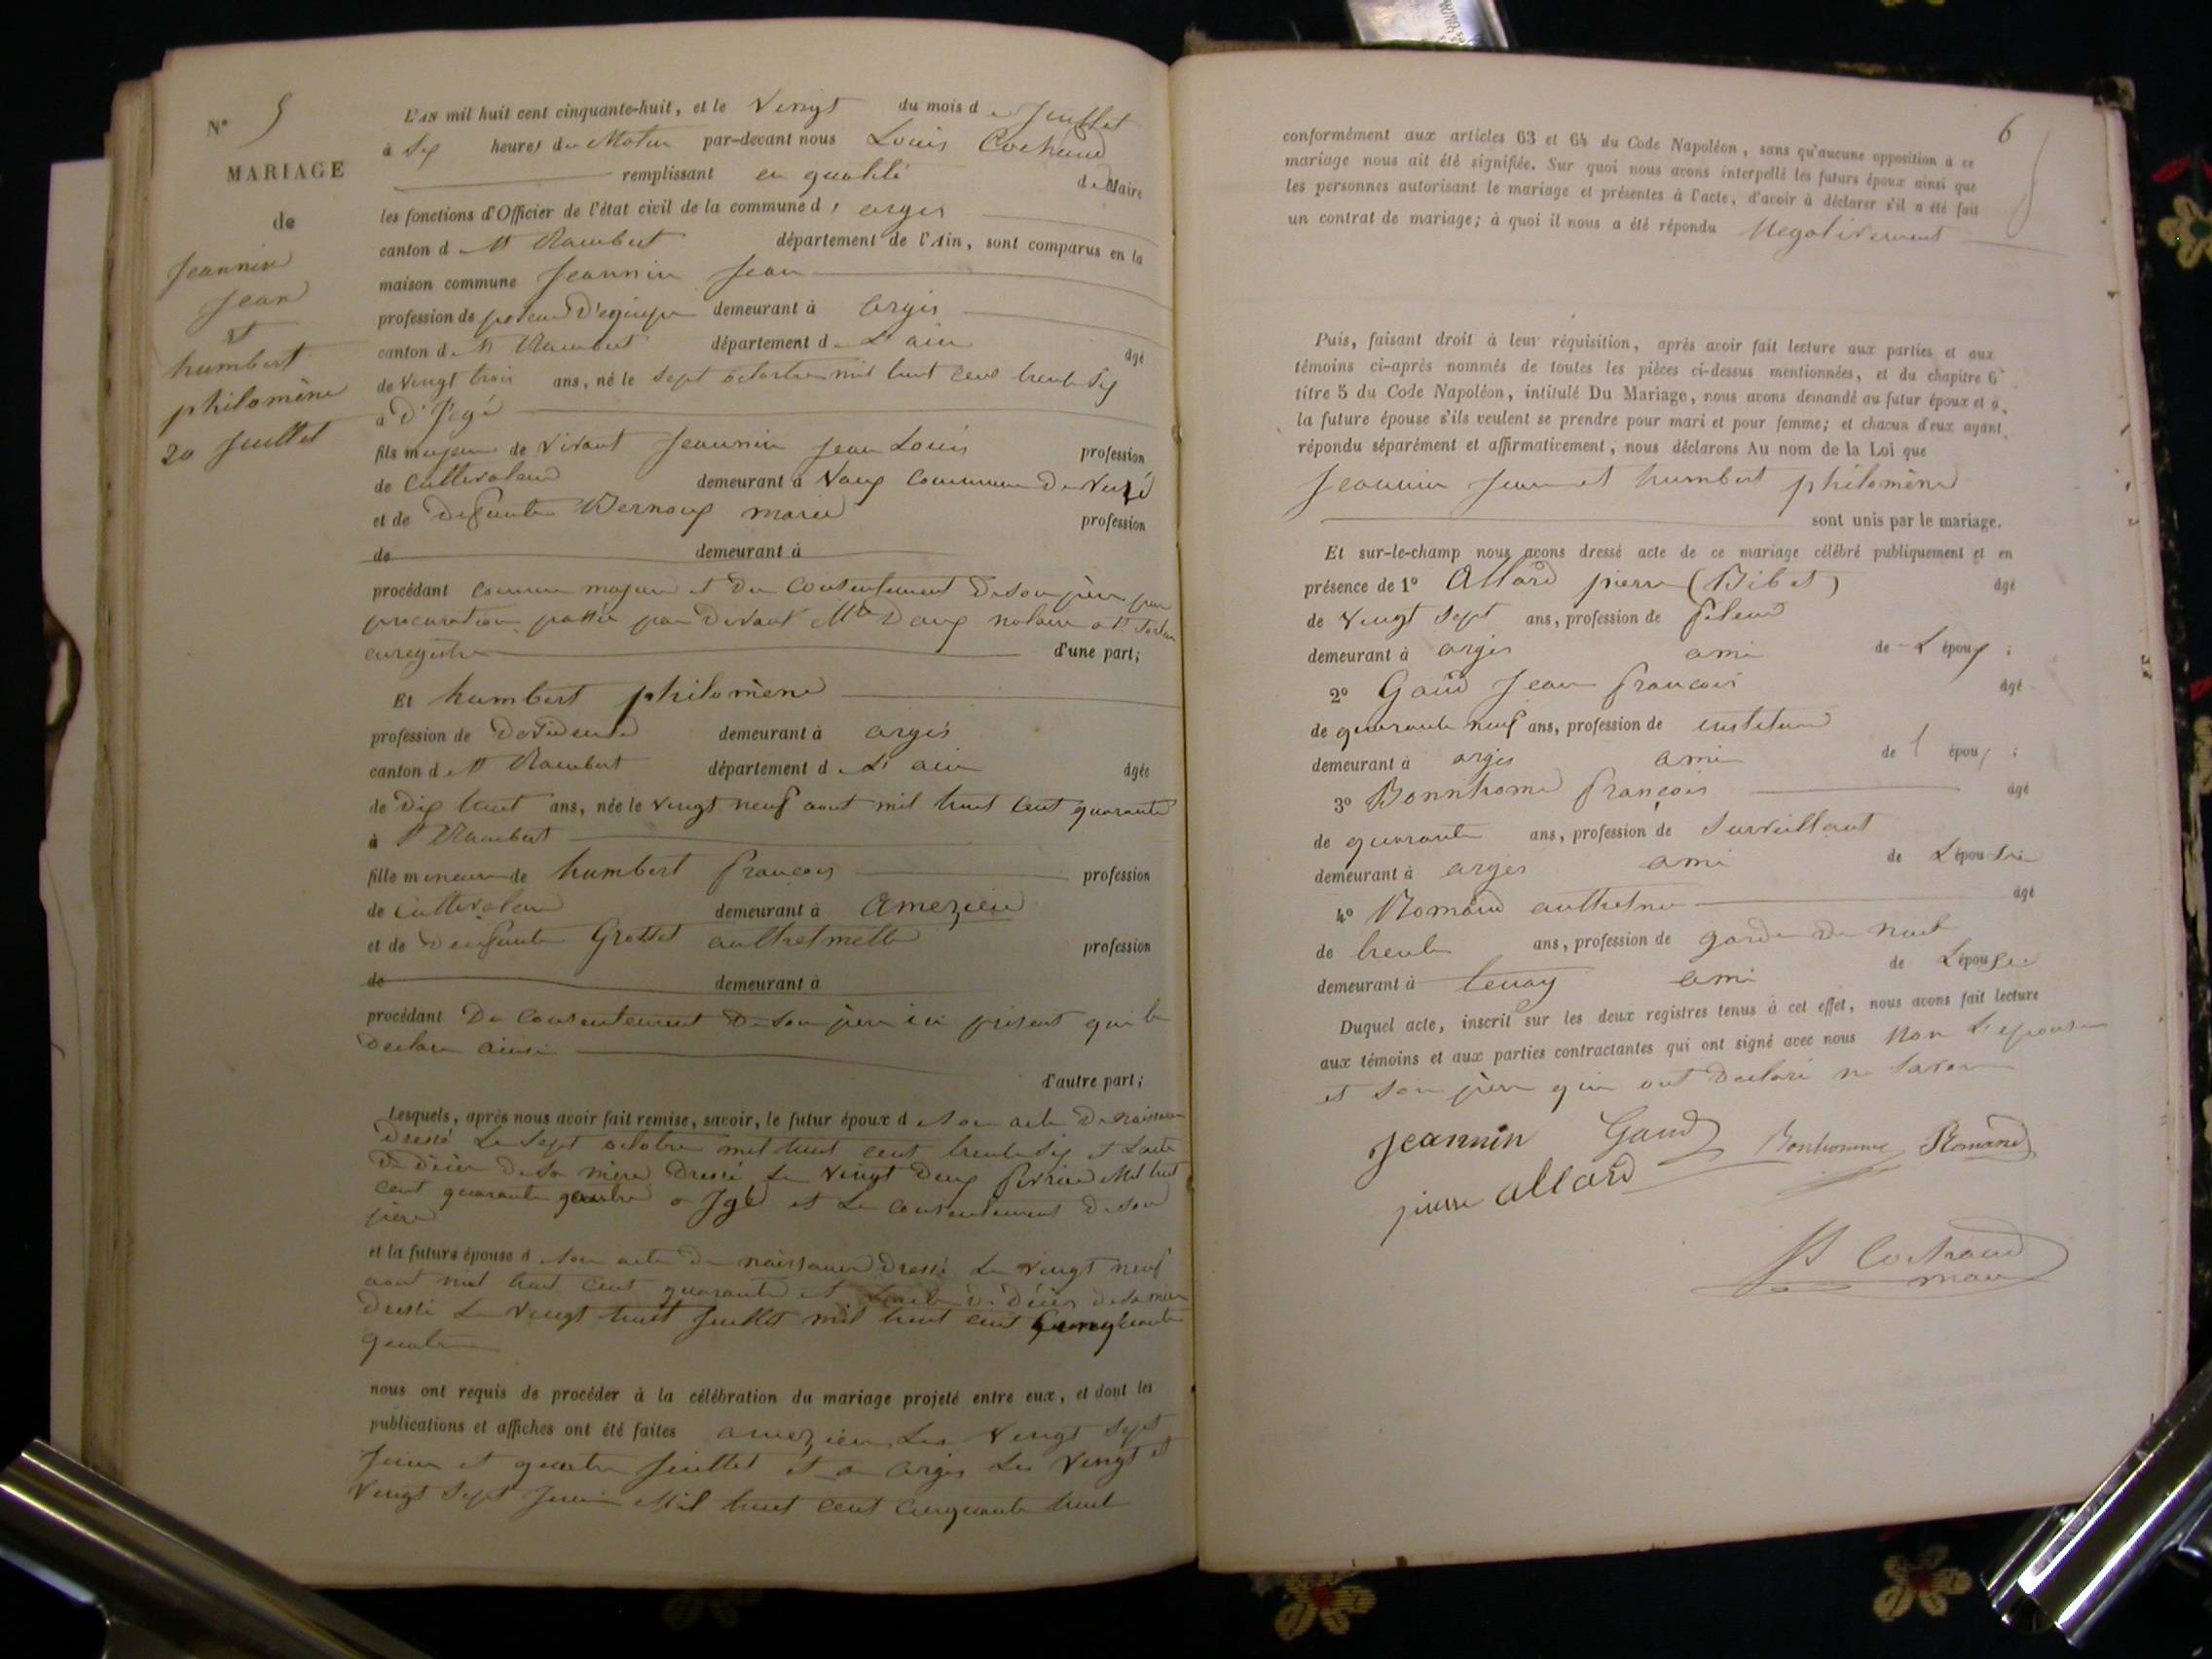 N° 5
MARIAGE
de
Jeannin
Jean
et
humbert
philomène
20 Juillet
L'AN mil huit cent cinquante-huit, et le Vingt du mois de Juillet
à Six heures du Matin par-devant nous Louis Cochaud
remplissant en qualité de Maire
les fonctions d'Officier de l'état civil de la commune d'argis
canton de St Rambert département de l'Ain, sont comparus en la
maison commune Jeannin Jean
profession de demeurant à argis
canton de St Rambert département de L'ain âgé
de vingt trois ans, né le Sept octobre mil huit cent trente Six
à
fils majeur de vivant Jeannin Jean Louis profession
de Cultivateur demeurant à Vaux Commune de Verzé
et de defunte Bernoux marie profession
de demeurant à
procédant comme majeur et du Consentement de son père par
procuration passée par devant notaire
enregistrée d'une part;
Et humbert philomène
profession de Devideuse demeurant à argis
canton de St Rambert département de L'ain âgée
de dix huit ans, née le vingt neuf aout mil huit Cent quarante
à St Rambert
fille mineure de humbert françois profession
de Cultivateur demeurant à Amezieu
et de deufunte Grosset anthelmette profession
de demeurant à
procédant Du Consentement de Son père ici présent qui le
Declare ainsi
d'autre part;
Lesquels, après nous avoir fait remise, savoir, le futur époux de Son acte De naissance
dressé Le Sept octobre mil huit cent trente Six et L'acte
de décès de Sa mère Dressé Le Vingt Deux fevrier Mil huit
cent quarante quatre a Igé et Le Consentement de son
père
et la future épouse de Son acte De naissance Dressé Le Vingt neuf
aout mil huit Cent quarante et L'acte de Décès de Sa mère
Dressé Le Vingt huit Juillet mil huit cent Cinquante
quatre
nous ont requis de procéder à la célébration du mariage projeté entre eux, et dont les
publications et affiches ont été faites a mezieu Les Vingt Sept
Juin et quatre Juillet et a argis Les Vingt et
Vingt Sept Juin Mil huit cent Cinquante huit
6
conformément aux articles 63 et 64 du Code Napoléon, sans qu'aucune opposition à ce
mariage nous ait été signifiée. Sur quoi nous avons interpellé les futurs époux ainsi que
les personnes autorisant le mariage et présentes à l'acte, d'avoir à déclarer s'il a été fait
un contrat de mariage; à quoi il nous a été répondu Négativement
Puis, faisant droit à leur réquisition, après avoir fait lecture aux parties et aux
témoins ci-après nommés de toutes les pièces ci-dessus mentionnées, et du chapitre 6
titre 5 du Code Napoléon, intitulé Du Mariage, nous avons demandé au futur époux et à
la future épouse s'ils veulent se prendre pour mari et pour femme; et chacun d'eux ayant
répondu séparément et affirmativement, nous déclarons Au nom de la Loi que
Jeannin Jean et humbert philomène
sont unis par le mariage.
Et sur-le-champ nous avons dressé acte de ce mariage célébré publiquement et en
présence de 1° Allard pierre (Bibet) âgé
de Vingt Sept ans, profession de fileur
demeurant à argis ami de L'époux;
2° Gaud Jean françois âgé
de quarante neuf ans, profession de instituteur
demeurant à argis ami de l'époux;
3° Bonnhome françois âgé
de quarante ans, profession de Surveillant
demeurant à argis ami de L'épouse
4° Romand anthelme âgé
de trente ans, profession de garde de nuit
demeurant à tenay ami de L'épouse
Duquel acte, inscrit sur les deux registres tenus à cet effet, nous avons fait lecture
aux témoins et aux parties contractantes qui ont signé avec nous Non L'épouse
et Son père qui ont Declaré ne Savoir
Jeannin Gaud Bonhomme Romand
pierre allard
Cochaud
maire